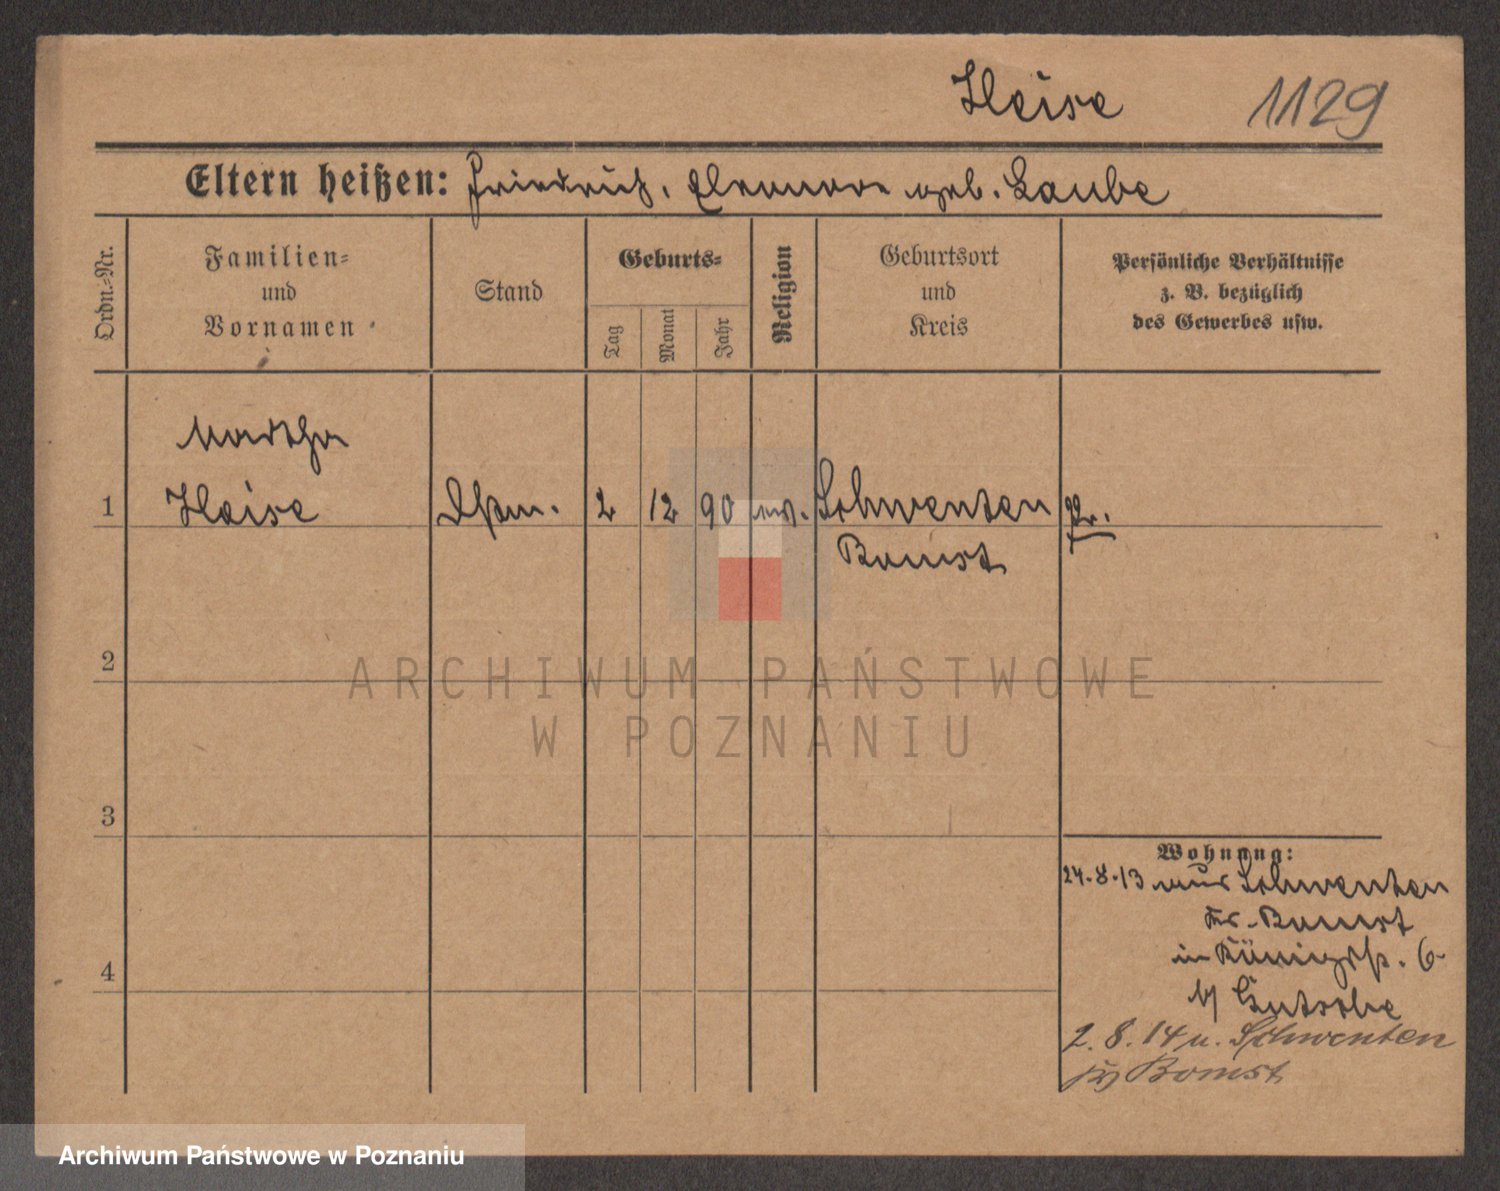 Heise 1129
Eltern heißen: Friedrich, Eleonore geb. Laube
Ordn.-Nr.
Familien-
und
Vornamen
Stand
Geburts-
Tag
Monat
Jahr
Religion
Geburtsort
und
Kreis
Persönliche Verhältnisse
z. B. bezüglich
des Gewerbes usw.
Martha
1 Heise 2 12 90 ev. Schwenten Pr.
Bomst
2
3
4
Wohnung:
24.8.13 aus Schwenten
Kr. Bomst
in Königspl. 6
b/
2.8.14 n. Schwenten
Bomst
ARCHIWUM PAŃSTWOWE
W POZNANIU
Archiwum Państwowe w Poznaniu